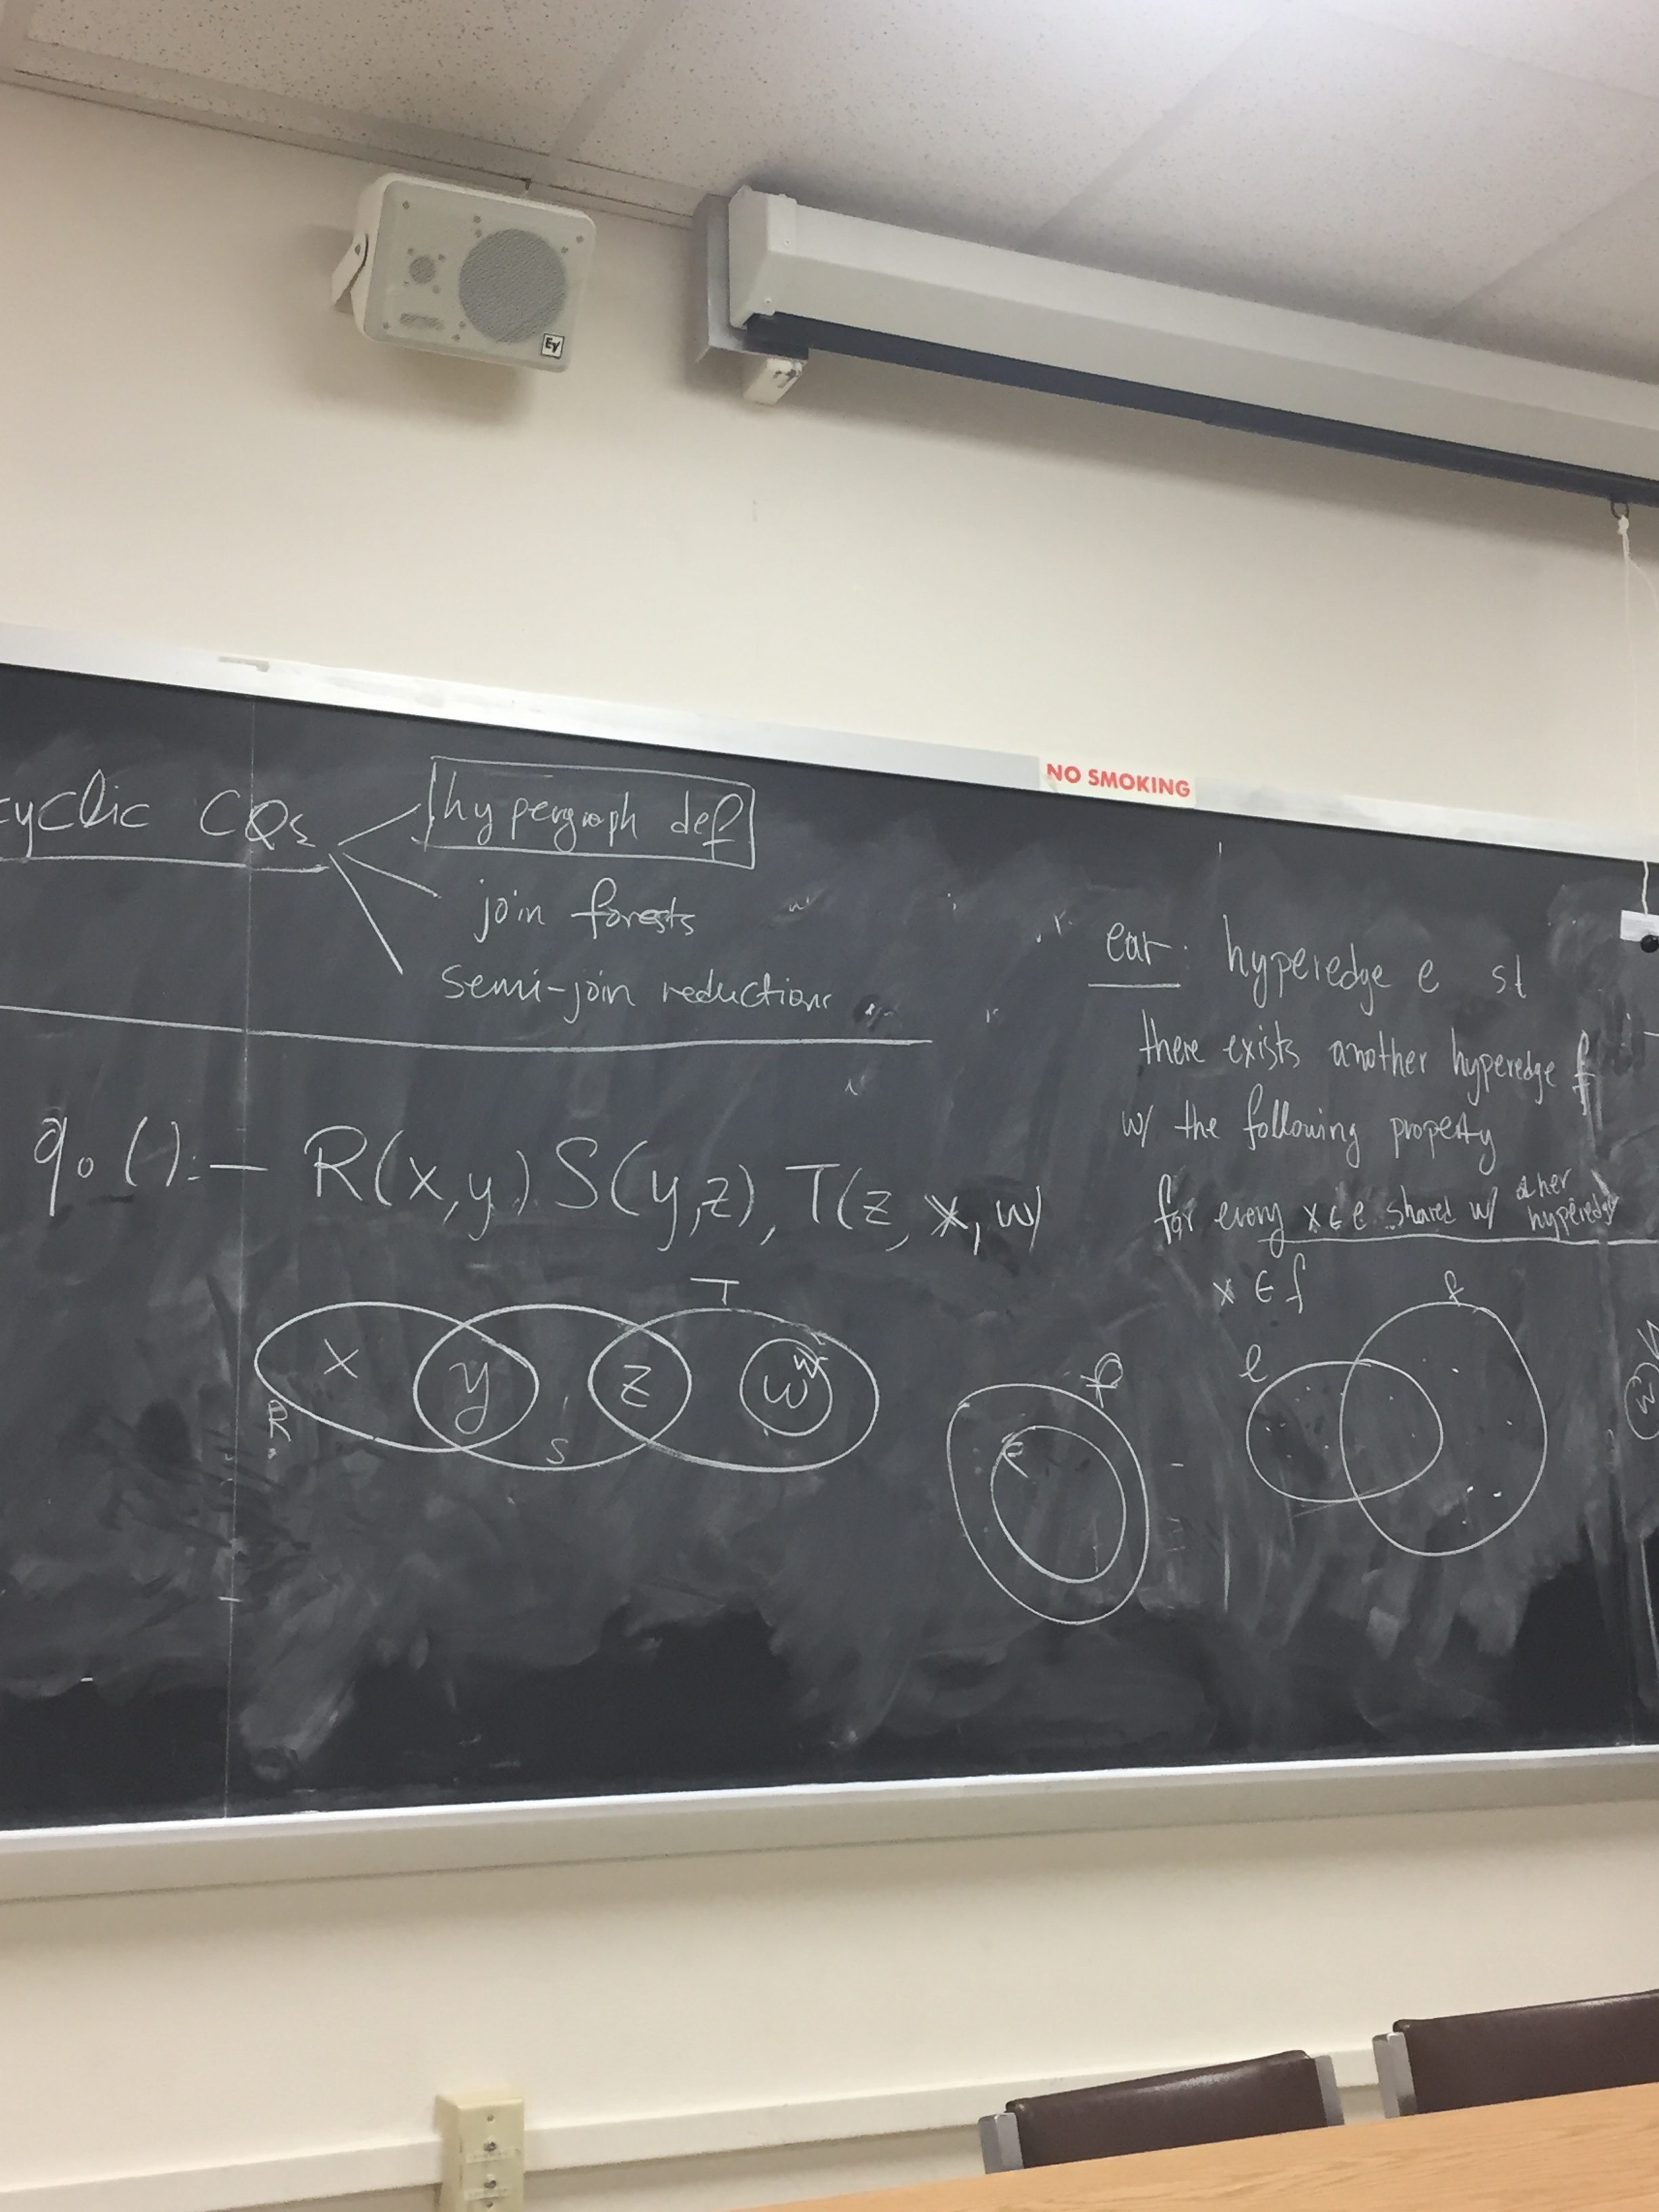 EV
NO SMOKING
cyclic CQs
hypergraph def
join forests
semi-join reductions
q₀ () :- R(x,y) S(y,z), T(z, x, w)
T
x y z w
R
S
ear: hyperedge e st
there exists another hyperedge f
w/ the following property
for every x ∈ e shared w/ other hyperedge
x ∈ f
e f
w